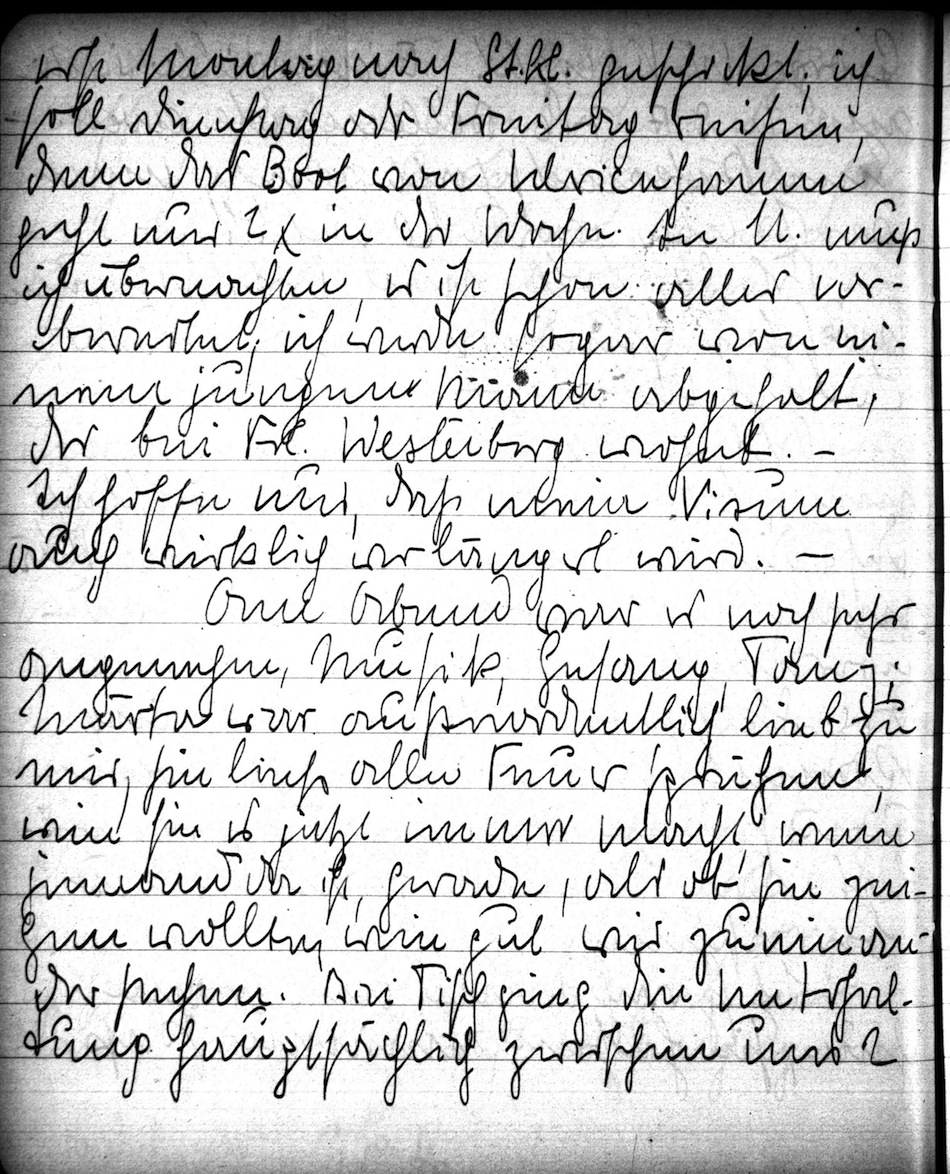 erst Montag nach Sthl. geschickt, ich
soll Dienstag oder Freitag reisen,
denn das Boot von Ulricehamn
geht nur 2 x in der Woche. In U. muß
ich übernachten, es ist schon alles vor-
bereitet, ich werde sogar von ei-
nem jungen Mann abgeholt,
der bei Frl. Westerberg wohnt. –
Ich hoffe nur, daß mein Visum
auch wirklich verlängert wird. –
Am Abend war es noch sehr
angenehm, Musik, Gesang, Tanz.
Märta war außerordentlich lieb zu
mir, sie ließ alle Feuer sprühen,
wie sie es jetzt immer macht, wenn
jemand da ist, gerade, als ob sie zei-
gen wollte, wie gut wir zueinan-
der stehen. Bei Tisch ging die Unterhal-
tung hauptsächlich zwischen uns 2